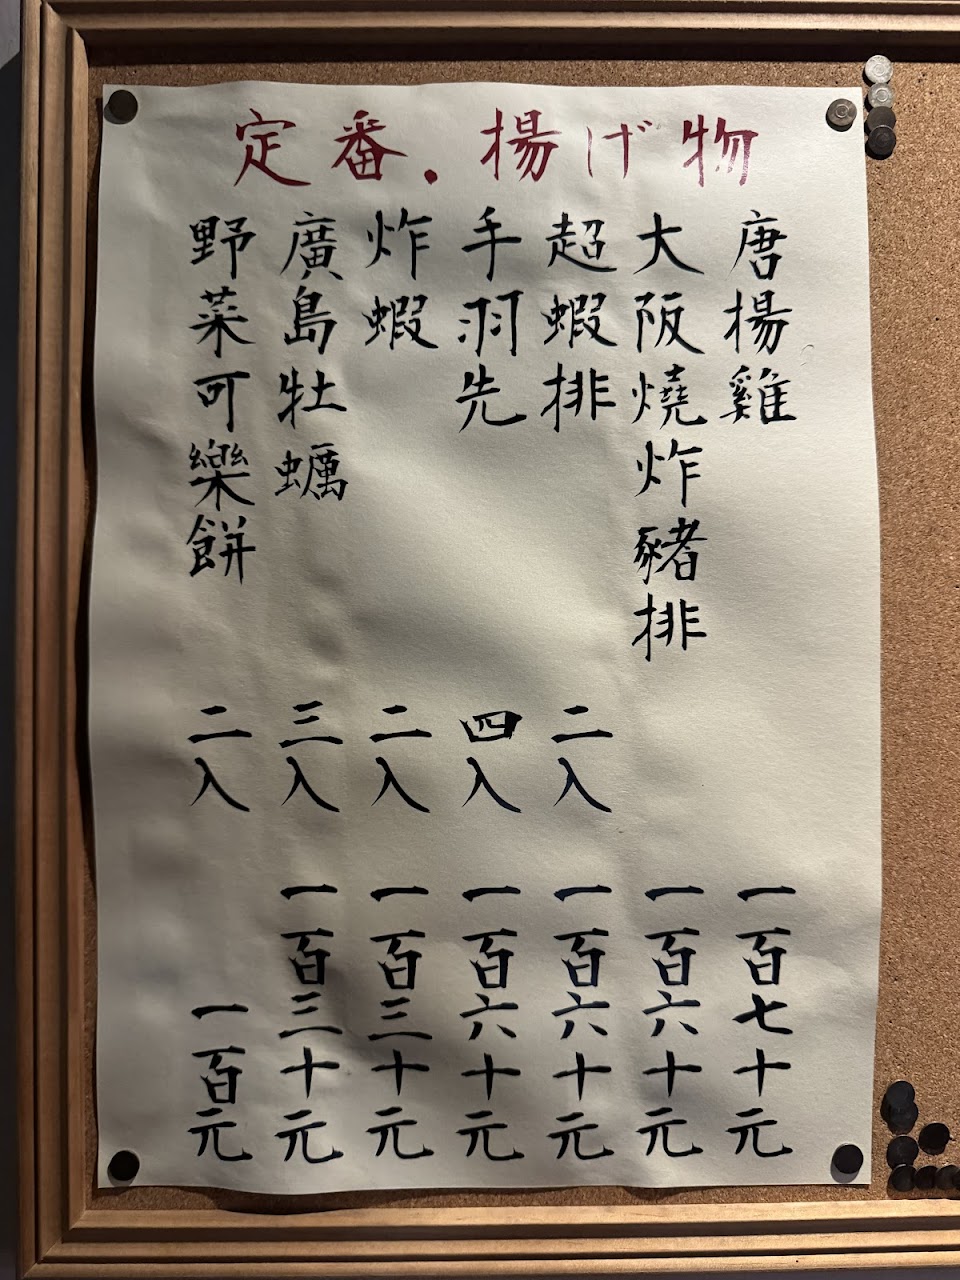 定番.揚げ物
唐揚雞 一百七十元
大阪燒炸豬排 一百六十元
超蝦排 二入 一百六十元
手羽先 四入 一百六十元
炸蝦 二入 一百三十元
廣島牡蠣 三入 一百三十元
野菜可樂餅 二入 一百元